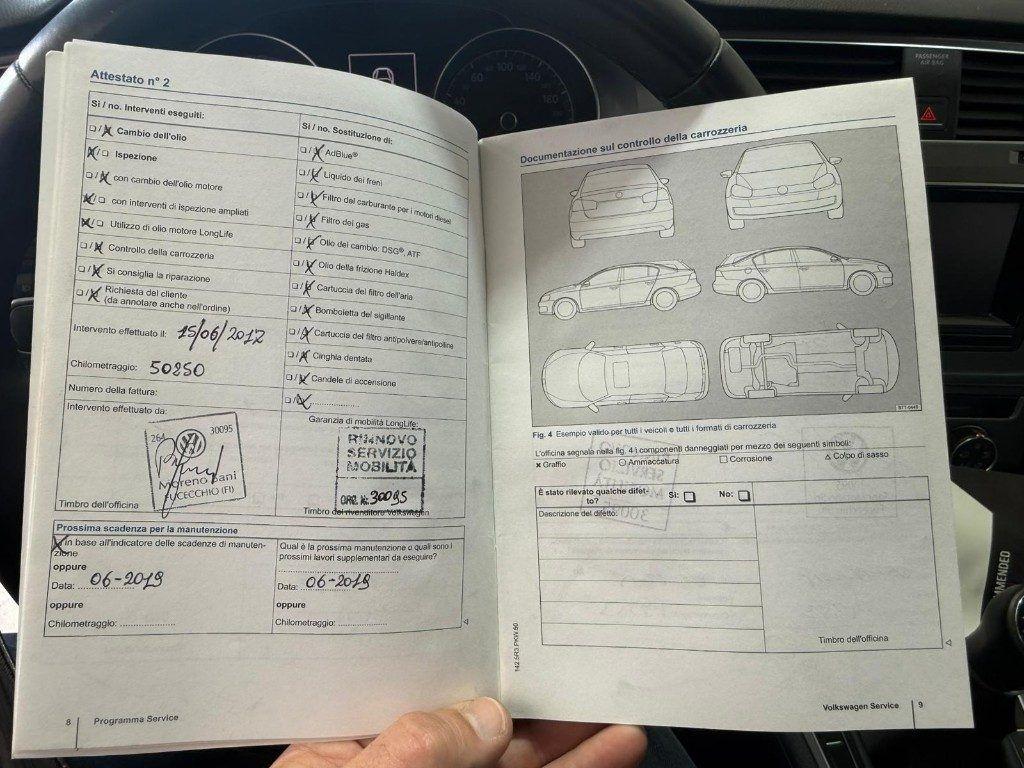 Attestato n° 2
Sì / no. Interventi eseguiti:
Cambio dell'olio
Ispezione
con cambio dell'olio motore
con interventi di ispezione ampliati
Utilizzo di olio motore LongLife
Controllo della carrozzeria
Si consiglia la riparazione
Richiesta del cliente
(da annotare anche nell'ordine)
Intervento effettuato il: 15/06/2017
Chilometraggio: 50250
Numero della fattura:
Intervento effettuato da:
264 30095
Moreno Bani
FUCECCHIO (FI)
Timbro dell'officina
Sì / no. Sostituzione di:
AdBlue®
Liquido dei freni
Filtro del carburante per i motori diesel
Filtro del gas
Olio del cambio: DSG®, ATF
Olio della frizione Haldex
Cartuccia del filtro dell'aria
Bomboletta del sigillante
Cartuccia del filtro antipolvere/antipolline
Cinghia dentata
Candele di accensione
Garanzia di mobilità LongLife:
RINNOVO
SERVIZIO
MOBILITÀ
ORG. N. 30095
Timbro del rivenditore Volkswagen
Prossima scadenza per la manutenzione
in base all'indicatore delle scadenze di manuten-
zione
oppure
Data: 06-2019
oppure
Chilometraggio:
Qual è la prossima manutenzione o quali sono i
prossimi lavori supplementari da eseguire?
Data: 06-2019
oppure
Chilometraggio:
8 Programma Service
Documentazione sul controllo della carrozzeria
B7T-0449
Fig. 4 Esempio valido per tutti i veicoli e tutti i formati di carrozzeria
L'officina segnala nella fig. 4 i componenti danneggiati per mezzo dei seguenti simboli:
x Graffio O Ammaccatura □ Corrosione Δ Colpo di sasso
È stato rilevato qualche difet-
to? Sì: No:
Descrizione del difetto:
Timbro dell'officina
142.5R3.PKW.60
Volkswagen Service 9
PASSENGER
AIR BAG
60
100
140
180
MMENDED